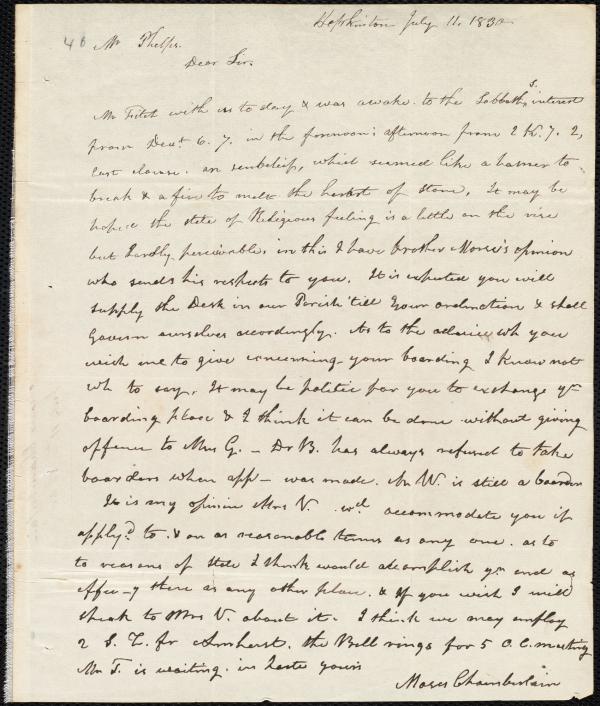 Hopkinton July 11. 1830
46 Mr Phelps.
Dear Sir.
Mr Fitch with us to day & was awake to the Sabbath s. interest
from Deut 6. 7. in the forenoon; afternoon from 2 K. 7. 2,
last clause. on unbelief, which seemed like a hammer to
break & a fire to melt the heart of stone, It may be
hoped the state of Religious feeling is a little on the rise
but hardly perceivable, in this I have brother Morse's opinion
who sends his respects to you. It is expected you will
supply the Desk in our Parish 'till your ordination & shall
govern ourselves accordingly. As to the advice wh you
wish me to give concerning your boarding I know not
wh to say, It may be politic for you to exchange yr
boarding place & I think it can be done without giving
offence to Mrs G. - Dr B. has always refused to take
boarders when app- was made. Mr W. is still a boarder
It is my opinion Mrs V. wd. accommodate you if
apply'd to & on as reasonable terms as any one. as to
to reasons of State I think would accomplish yr end as
there as any other place. & If you wish I will
speak to Mrs V. about it. I think we may employ
2 S. T. fr Amherst. the Bell rings for 5 O.C. meeting
Mr F. is waiting. in haste yours
Moses Chamberlain